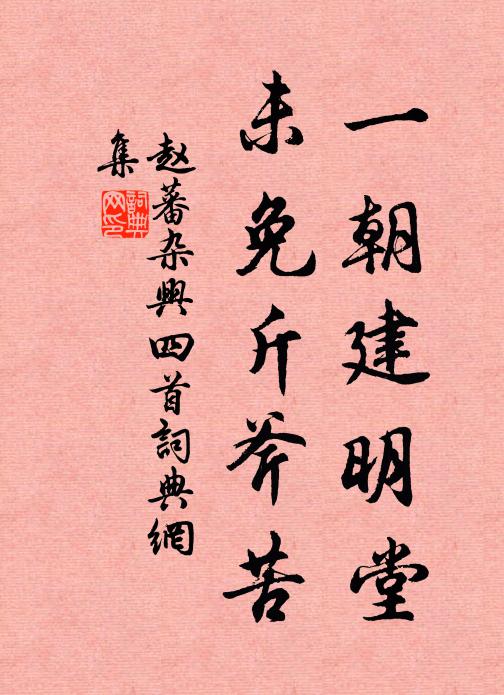 一朝建明堂
未免斤斧苦
赵蕃杂興四首詞典網
集
詞典网印